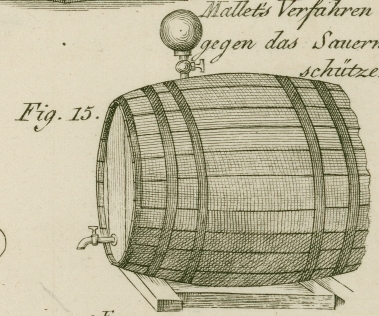 Mallet's Verfahren
gegen das Sauern
schütze
Fig. 15.